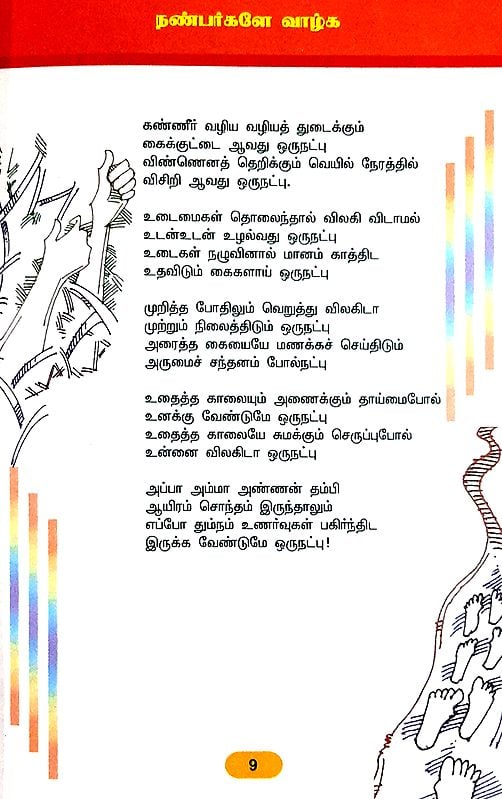 நண்பர்களே வாழ்க
கண்ணீர் வழிய வழியத் துடைக்கும்
கைக்குட்டை ஆவது ஒருநட்பு
விண்ணெனத் தெறிக்கும் வெயில் நேரத்தில்
விசிறி ஆவது ஒருநட்பு.
உடைமைகள் தொலைந்தால் விலகி விடாமல்
உடன்உடன் உழல்வது ஒருநட்பு
உடைகள் நழுவினால் மானம் காத்திட
உதவிடும் கைகளாய் ஒருநட்பு
முறித்த போதிலும் வெறுத்து விலகிடா
முற்றும் நிலைத்திடும் ஒருநட்பு
அரைத்த கையையே மணக்கச் செய்திடும்
அருமைச் சந்தனம் போல்நட்பு
உதைத்த காலையும் அணைக்கும் தாய்மைபோல்
உனக்கு வேண்டுமே ஒருநட்பு
உதைத்த காலையே சுமக்கும் செருப்புபோல்
உன்னை விலகிடா ஒருநட்பு
அப்பா அம்மா அண்ணன் தம்பி
ஆயிரம் சொந்தம் இருந்தாலும்
எப்போ தும்நம் உணர்வுகள் பகிர்ந்திட
இருக்க வேண்டுமே ஒருநட்பு!
9